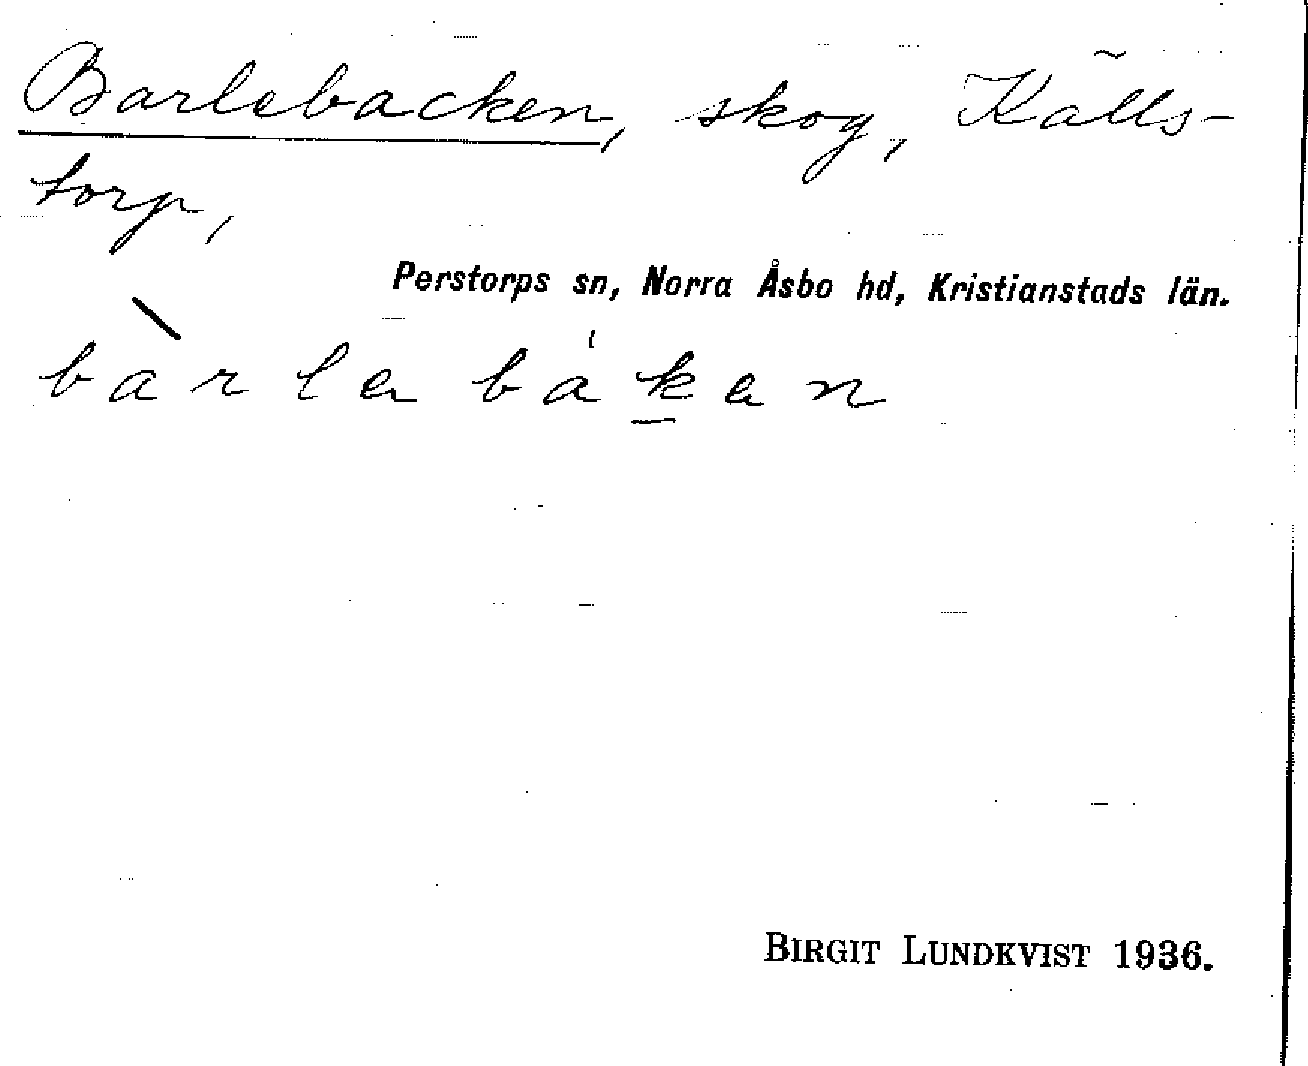 Barlebacken, skog, Källs-
torp,
Perstorps sn, Norra Åsbo hd, Kristianstads län.
bàrlabákan
BIRGIT LUNDKVIST 1936.